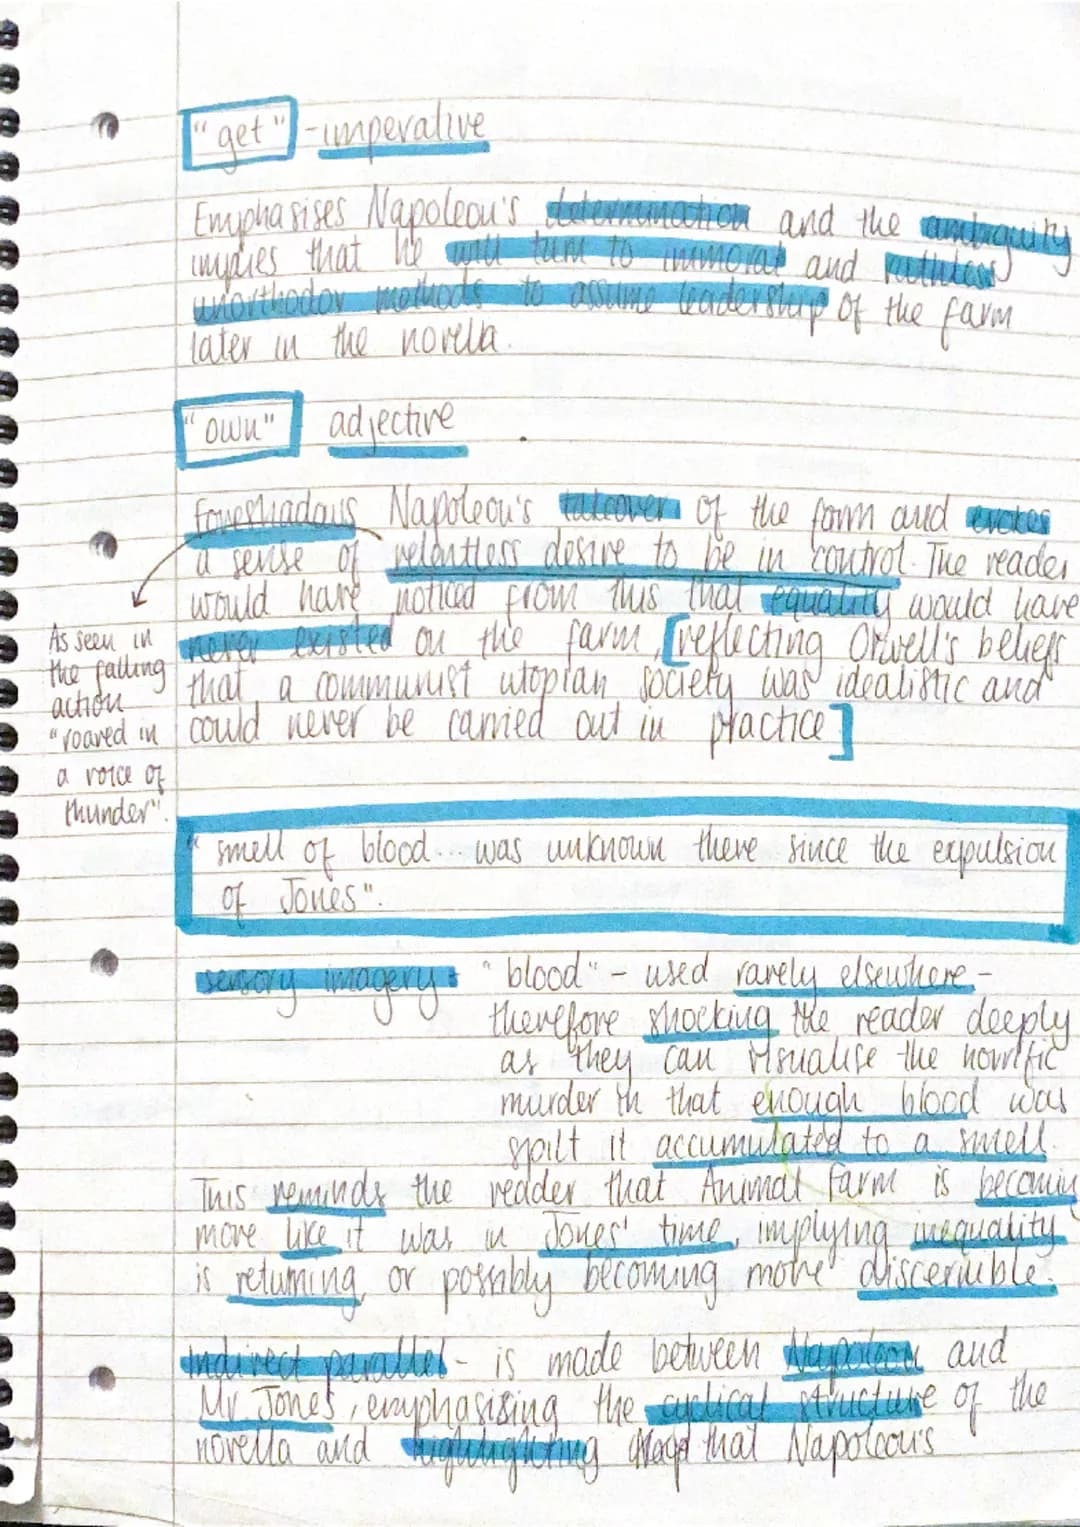 "get" - imperative
Emphasises Napoleon's determination and the ambiguity
implies that he will turn to immoral and ruthless
unorthodox methods to assume leadership of the farm
later in the novella.
"own" adjective
Foreshadows Napoleon's takeover of the farm and evokes
a sense of relentless desire to be in control. The reader
would have noticed from this that equality would have
never existed on the farm, [reflecting Orwell's beliefs
that a communist utopian society was idealistic and
could never be carried out in practice]
As seen in
the falling
action
"roared in
a voice of
thunder".
"smell of blood... was unknown there since the expulsion
of Jones".
sensory imagery - "blood" - used rarely elsewhere -
therefore shocking the reader deeply
as they can visualise the horrific
murder in that enough blood was
spilt it accumulated to a smell.
This reminds the reader that Animal Farm is becoming
more like it was in Jones' time, implying inequality
is returning, or possibly becoming more discernible.
Indirect parallel - is made between Napoleon and
Mr Jones, emphasising the cyclical structure of the
novella and highlighting that Napoleon's